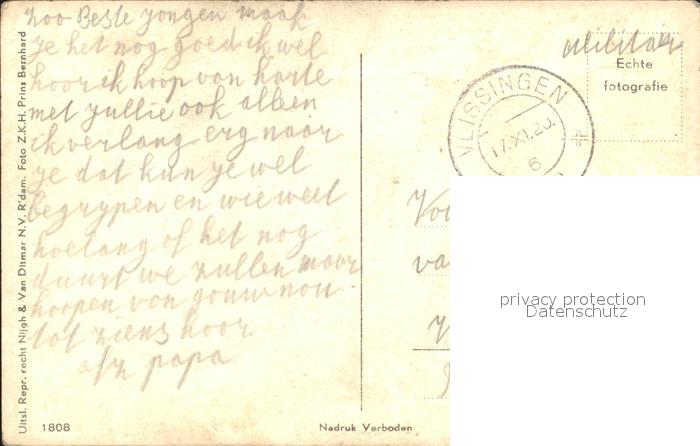 zoo Beste jongen maak
je het nog goed ik wel
hoor ik hoop van harte
met jullie ook alleen
ik verlang erg naar
je dat kun je wel
begrypen en wie weet
hoelang of het nog
duurt we zullen maar
hoopen van gouw nou
tot ziens hoor
afz papa
Uitsl. Repr. recht Nijgh & Van Ditmar N.V. R'dam. Foto Z.K.H. Prins Bernhard
1808
Nadruk Verboden
Militair
Echte
fotografie
VLISSINGEN
17.XI.23.
6
va
privacy protection
Datenschutz